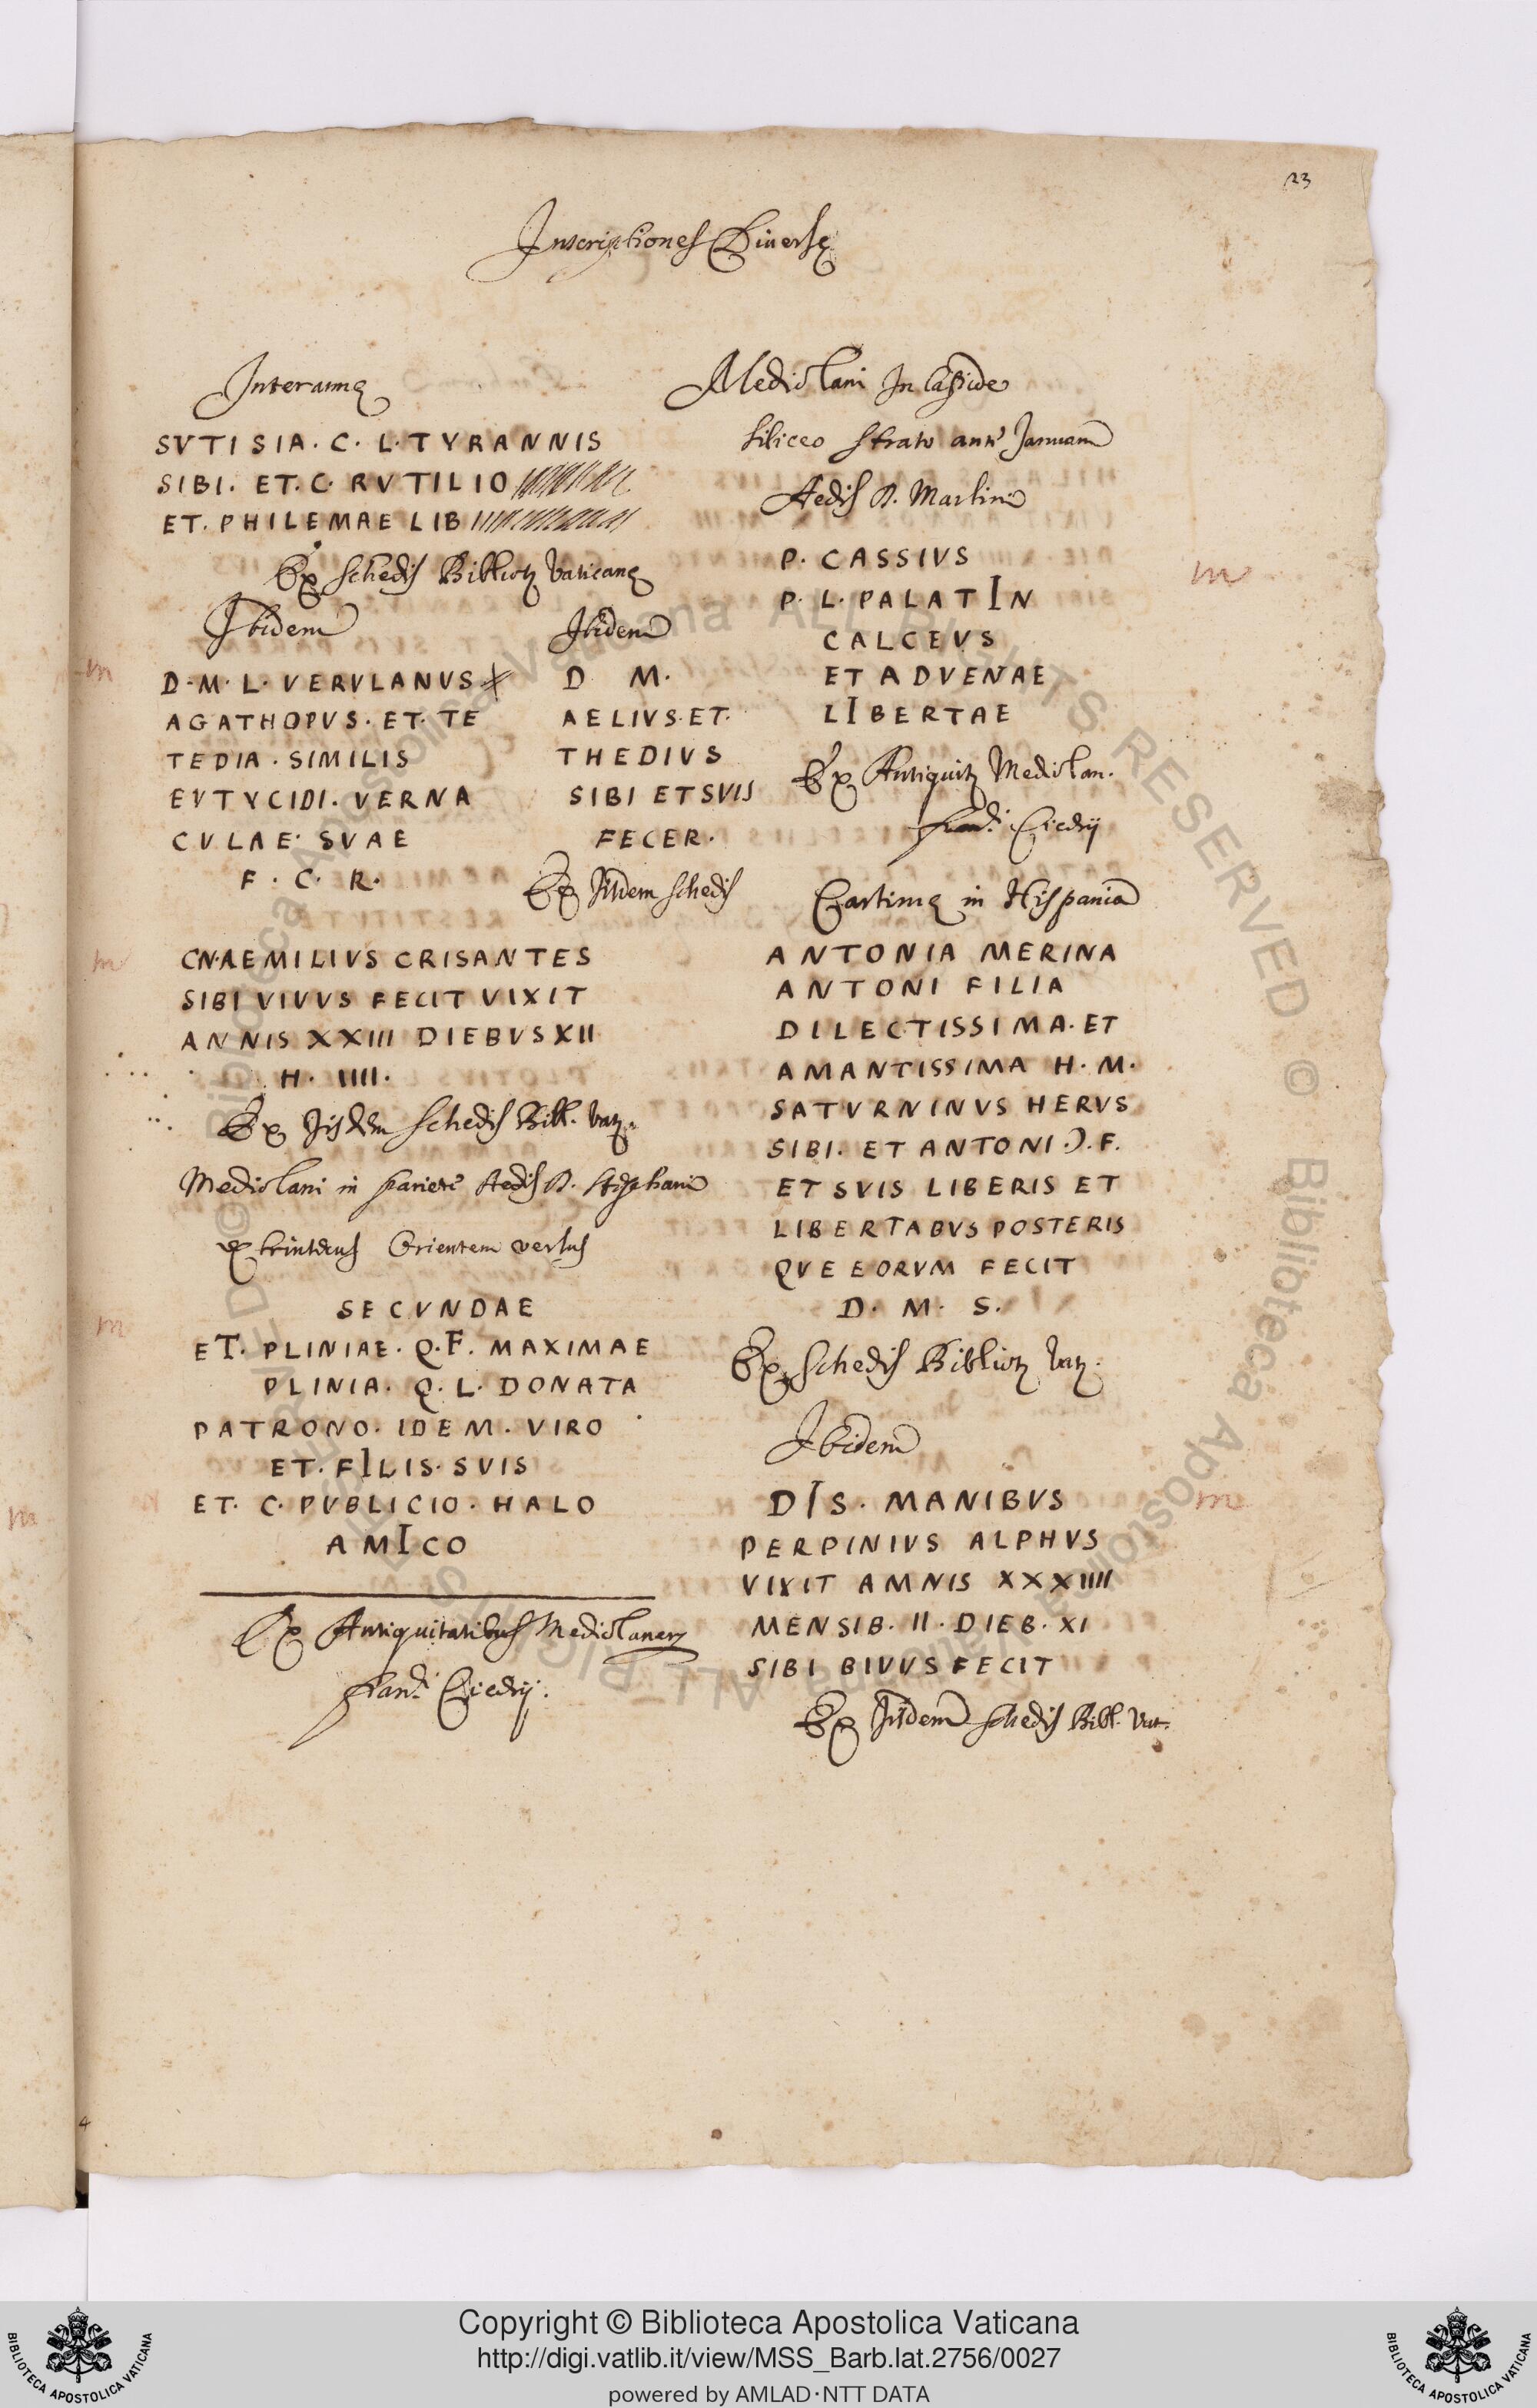 23
Inscriptiones Diversę
Interamnę
SVTISIA. C. L. TYRANNIS
SIBI. ET. C. RVTILIO
ET. PHILEMAE LIB
Ex schedis Bibliotę Vaticanę
Ibidem
D. M. L. VERVLANVS
AGATHOPVS. ET. TE
TEDIA. SIMILIS
EVTYCIDI. VERNA
CVLAE. SVAE
F. C. R.
Ibidem
D M.
AELIVS. ET.
THEDIVS
SIBI ET SVIS
FECER.
Ex Iisdem schedis
CN. AEMILIVS CRISANTES
SIBI VIVVS FECIT VIXIT
ANNIS XXIII DIEBVS XII
H. IIII.
Ex Iisdem schedis Bibl. Vatę.
Mediolani in pariete Aedis D. Stephani
extrinsecus Orientem versus
SECVNDAE
ET. PLINIAE. Q. F. MAXIMAE
PLINIA. Q. L. DONATA
PATRONO. IDEM. VIRO
ET. FILIS. SVIS
ET. C. PVBLICIO. HALO
AMICO
Ex Antiquitatibus Mediolanen
Fran. Ciedrij.
Mediolani In lapide
siliceo strato ante Januam
Aedis D. Martini
P. CASSIVS
P. L. PALATIN
CALCEVS
ET ADVENAE
LIBERTAE
Ex Antiquitę Mediolan.
Fran. Ciedrij
Cartimę in Hispania
ANTONIA MERINA
ANTONI FILIA
DILECTISSIMA. ET
AMANTISSIMA H. M.
SATVRNINVS HERVS
SIBI. ET ANTONI. Ↄ. F.
ET SVIS LIBERIS ET
LIBERTABVS POSTERIS
QVE EORVM FECIT
D. M. S.
Ex schedis Bibliotę Vatę.
Ibidem
DIS. MANIBVS
PERPINIVS ALPHVS
VIXIT AMNIS XXXIIII
MENSIB. II. DIEB. XI
SIBI BIVVS FECIT
Ex Iisdem schedis Bibl. Vat.
4
Copyright © Biblioteca Apostolica Vaticana
http://digi.vatlib.it/view/MSS_Barb.lat.2756/0027
powered by AMLAD·NTT DATA
BIBLIOTECA APOSTOLICA VATICANA
BIBLIOTECA APOSTOLICA VATICANA